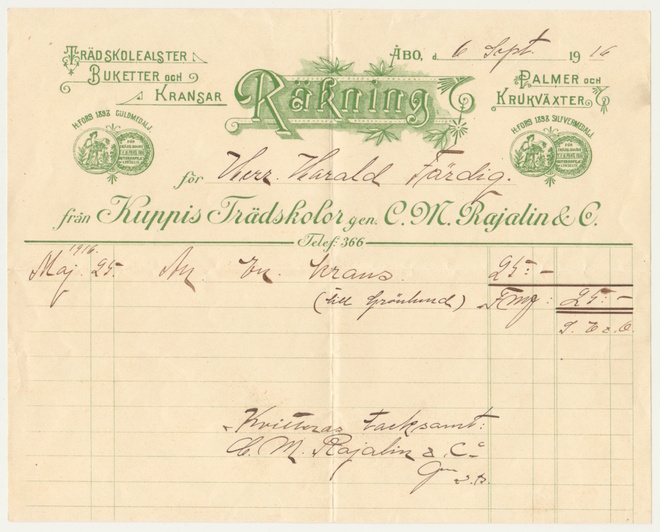 TRÄDSKOLEALSTER
BUKETTER OCH
KRANSAR
Räkning
ÅBO, d. 6 Sept. 1916
PALMER OCH
KRUKVÄXTER
H:FORS 1898 GULDMEDALJ
H:FORS 1898 SILFVERMEDALJ
för Herr Harald Färdig.
från Kuppis Trädskolor gen. C. M. Rajalin & C.
Telef. 366
1916.
Maj. 25. An En krans 25:-
(till Grönlund) Fmg: 25:-
Kvitteras tacksamt:
C. M. Rajalin & Co